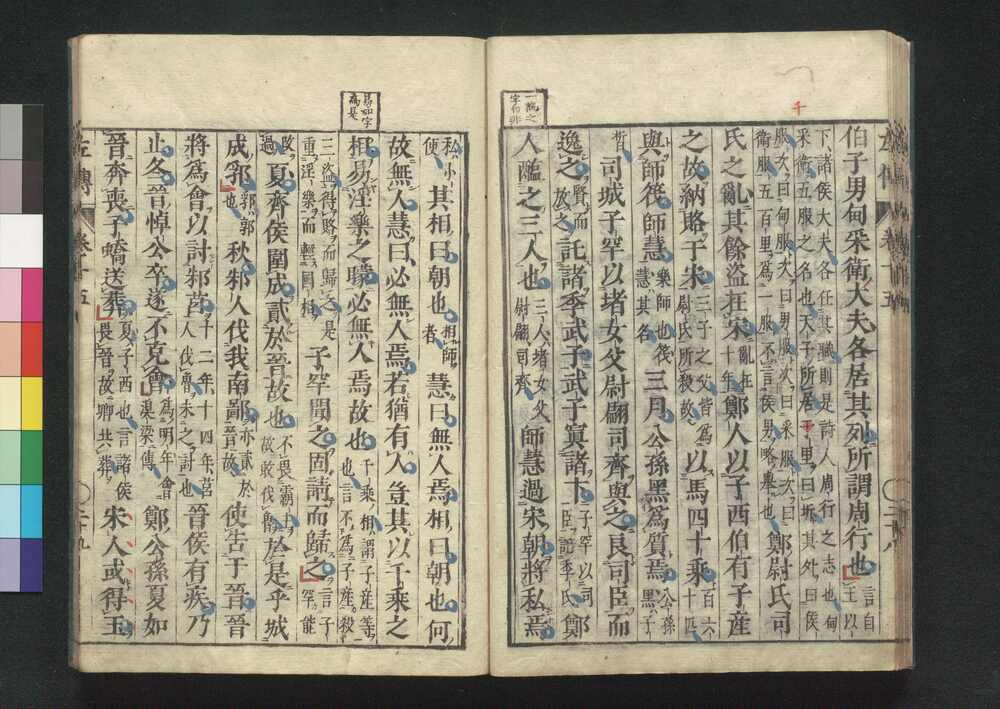 伯子男甸采衞大夫各居其列所謂周行也言自王以
下諸侯大夫各任其職則是詩人周行之志也甸
采衞五服之名也天子所居千里曰圻其外曰侯
服次曰甸服次曰男服次曰采服次曰
衞服五百里爲一服不言侯男略擧也鄭尉氏司
氏之亂其餘盜在宋亂在十年鄭人以子西伯有子產
之故納賂于宋三子之父皆爲尉氏所殺故以馬四十乘百六十匹
與師茷師慧樂師也茷慧其名三月公孫黑爲質焉公孫黑子
晳司城子罕以堵女父尉翩司齊與之良司臣而
逸之賢而放之託諸季武子武子寘諸卞子罕以司臣託季氏鄭
人醢之三人也三人堵女父尉翩司齊師慧過宋朝將私焉
一讀之字句非
私小便其相曰朝也相師者慧曰無人焉相曰朝也何
故無人慧曰必無人焉若猶有人豈其以千乘之
相易淫樂之矇必無人焉故也千乘相謂子產等也言不爲子產殺
三盜得賂而歸之是重淫樂而輕國相子罕聞之固請而歸之言子罕能
改過夏齊侯圍成貳於晉故也不畏霸主故敢伐魯於是乎城
成郛郛郭也秋邾人伐我南鄙亦貳於晉故使告于晉晉
將爲會以討邾莒十二年十四年莒人伐魯未之討也晉侯有疾乃
止冬晉悼公卒遂不克會爲明年會溴梁傳鄭公孫夏如
晉奔喪子蟜送葬夏子西也言諸侯畏晉故卿共葬宋人或得玉
易如字爲是
左傳
卷十五
二十八
左傳
卷十五
二十九